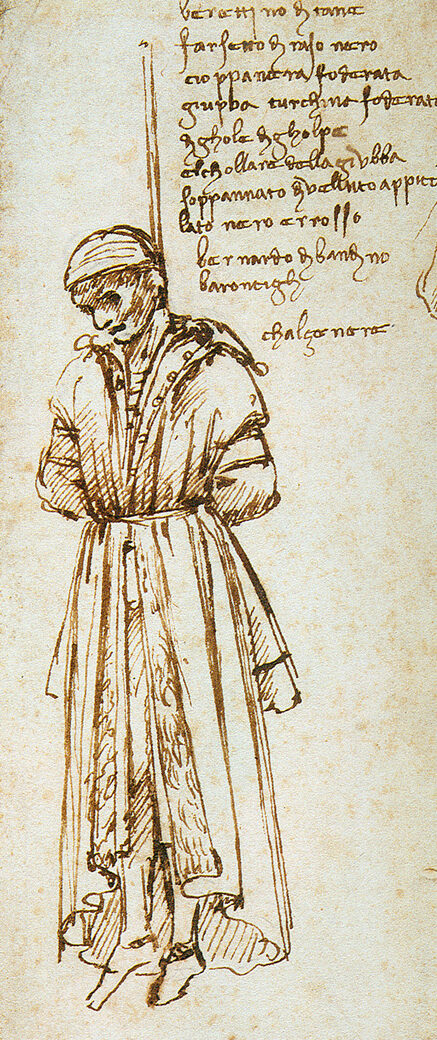 berettino di tane
farsetto di raso nero
cioppa nera foderata
giubba turchina foderata
di ghole di gholpe
el chollare della giubba
soppannato di velluto appicc
lato nero e rosso
bernardo di bandino
barontigli
chalze nere